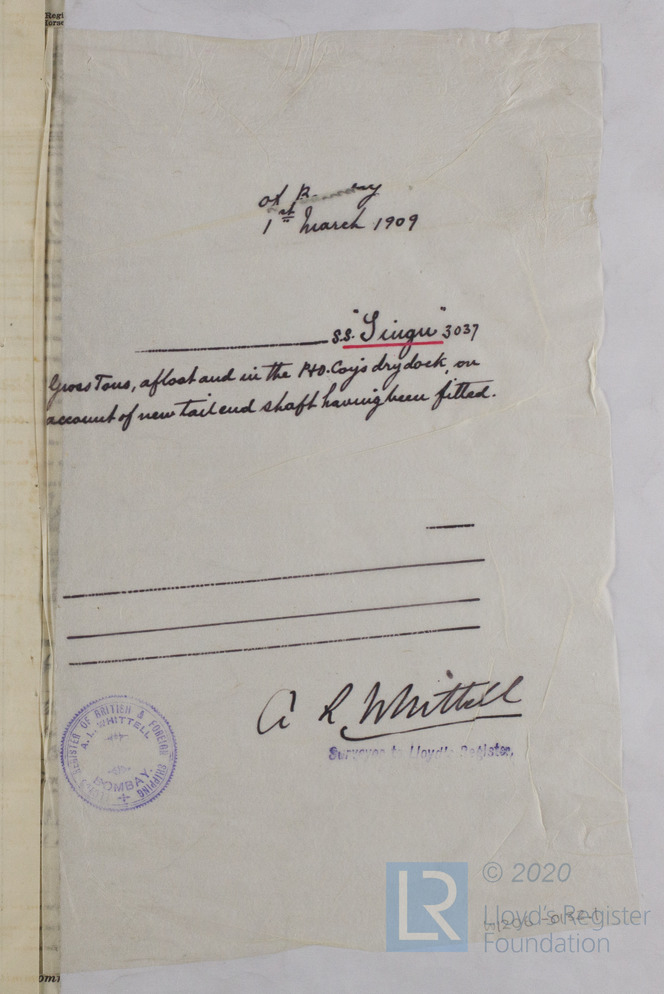 of Bombay
1st March 1909
S.S. "Singu" 3037
Gross Tons, afloat and in the P&O. Coy's dry dock, on
account of new tail end shaft having been fitted.
A L Whittell
Surveyor to Lloyd's Register.
LLOYD'S REGISTER OF BRITISH & FOREIGN SHIPPING
A. L. WHITTELL
BOMBAY.
LR
© 2020
Lloyd's Register
Foundation